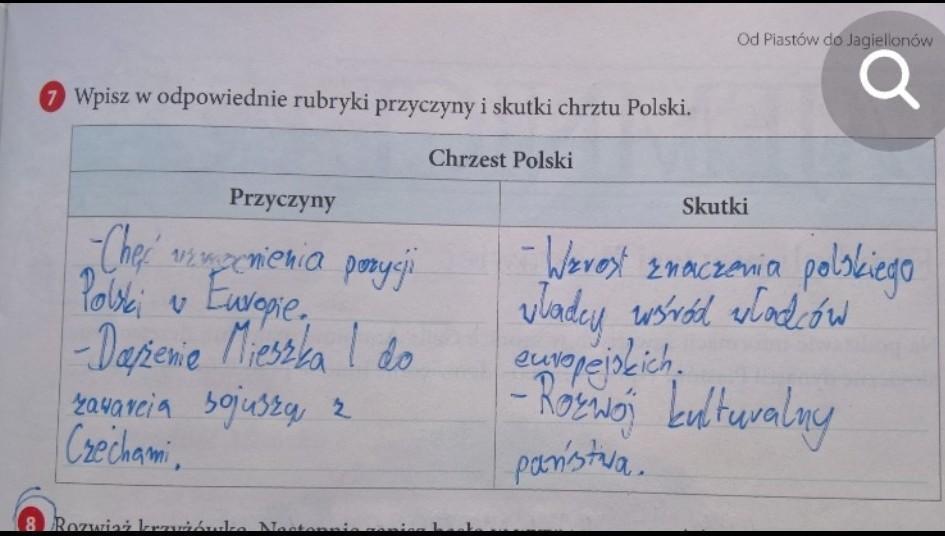 Od Piastów do Jagiellonów
7 Wpisz w odpowiednie rubryki przyczyny i skutki chrztu Polski.
Chrzest Polski
Przyczyny
Skutki
-Chęć wzmocnienia pozycji
Polski w Europie.
-Dążenie Mieszka I do
zawarcia sojuszą z
Czechami.
- Wzrost znaczenia polskiego
władcy wśród władców
europejskich.
- Rozwój kulturalny
państwa.
8 Rozwiąż krzyżówkę. Następnie zapisz hasło